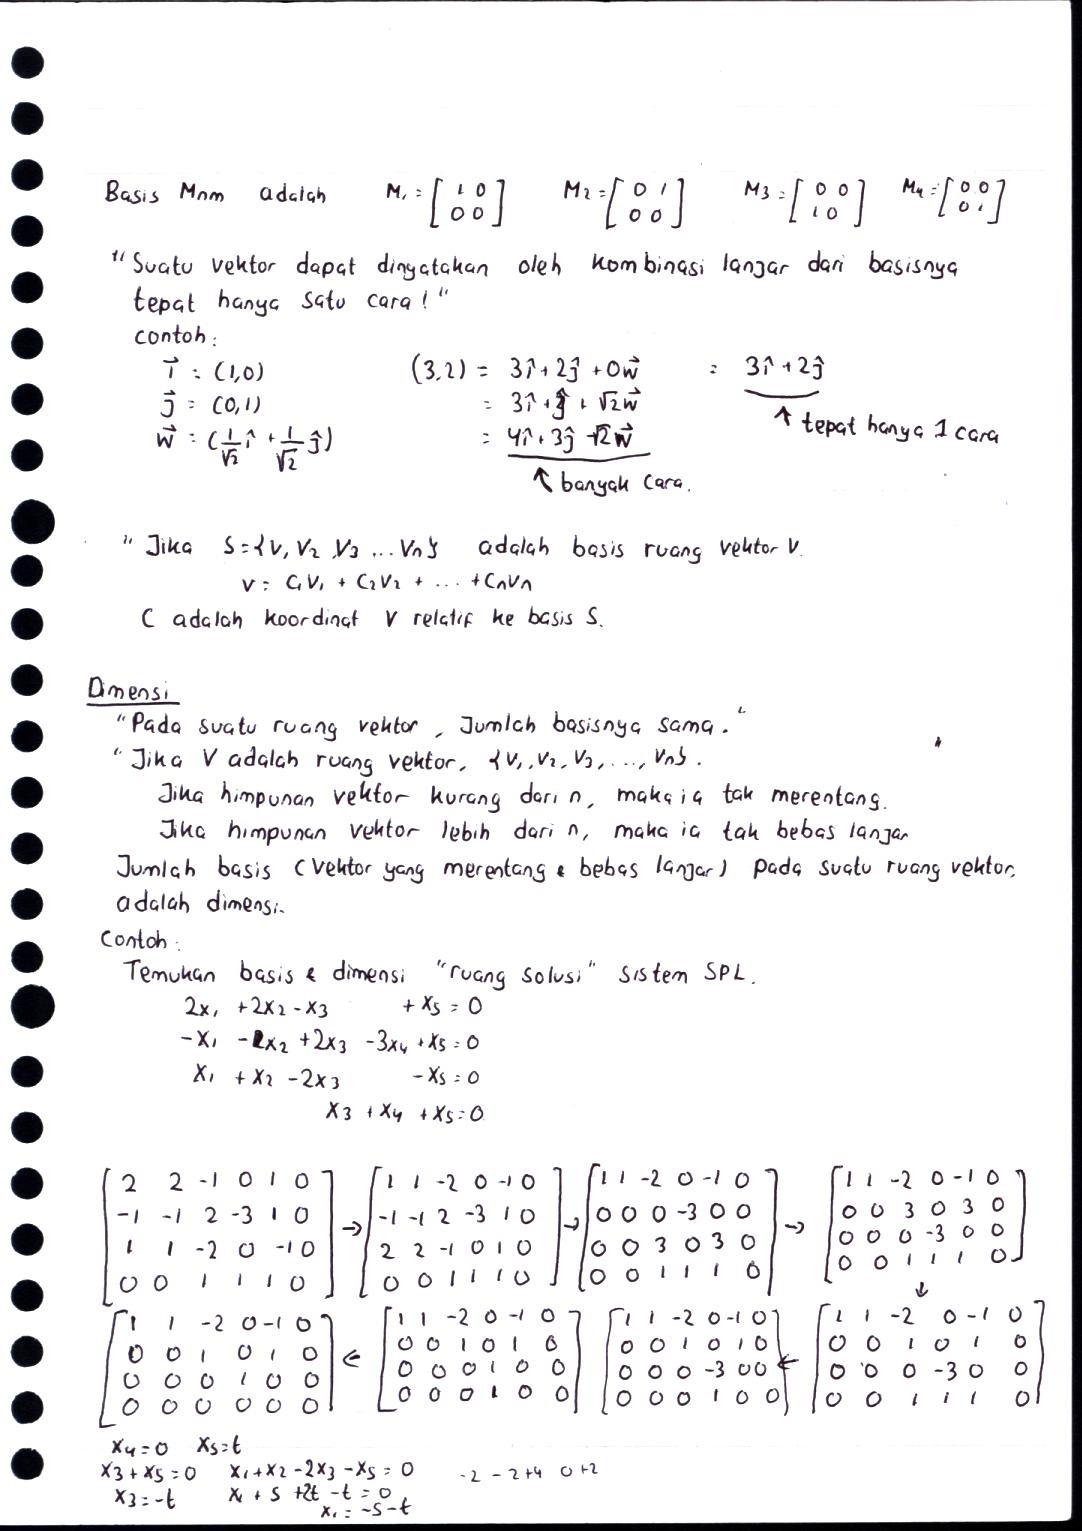 Basis Mnm adalah M₁ = [1 0; 0 0] M₂ = [0 1; 0 0] M₃ = [0 0; 1 0] M₄ = [0 0; 0 1]
"Suatu vektor dapat dinyatakan oleh kombinasi lanjar dari basisnya
tepat hanya satu cara!"
Contoh:
i⃗ = (1,0) (3,2) = 3î + 2ĵ + 0w⃗ = 3î + 2ĵ
j⃗ = (0,1) = 3î + ĵ + √2w⃗
↑ tepat hanya 1 cara
w⃗ = (1/√2 î + 1/√2 ĵ) = 4î + 3ĵ - √2w⃗
↑ banyak cara.
"Jika S={V, V₂ V₃ ... Vn} adalah basis ruang vektor V.
V = C₁V₁ + C₂V₂ + ... + CnVn
C adalah koordinat V relatif ke basis S.
Dimensi
"Pada suatu ruang vektor, Jumlah basisnya sama."
"Jika V adalah ruang vektor, {V₁, V₂, V₃, ..., Vn}.
Jika himpunan vektor kurang dari n, maka ia tak merentang.
Jika himpunan vektor lebih dari n, maka ia tak bebas lanjar
Jumlah basis (Vektor yang merentang & bebas lanjar) pada suatu ruang vektor,
adalah dimensi.
Contoh:
Temukan basis & dimensi "ruang solusi" sistem SPL.
2x₁ + 2x₂ - x₃ + x₅ = 0
-x₁ - x₂ + 2x₃ - 3x₄ + x₅ = 0
x₁ + x₂ - 2x₃ - x₅ = 0
x₃ + x₄ + x₅ = 0
[2 2 -1 0 1 0; -1 -1 2 -3 1 0; 1 1 -2 0 -1 0; 0 0 1 1 1 0] → [1 1 -2 0 -1 0; -1 -1 2 -3 1 0; 2 2 -1 0 1 0; 0 0 1 1 1 0] → [1 1 -2 0 -1 0; 0 0 0 -3 0 0; 0 0 3 0 3 0; 0 0 1 1 1 0] → [1 1 -2 0 -1 0; 0 0 3 0 3 0; 0 0 0 -3 0 0; 0 0 1 1 1 0]
↓
[1 1 -2 0 -1 0; 0 0 1 0 1 0; 0 0 0 1 0 0; 0 0 0 0 0 0] ← [1 1 -2 0 -1 0; 0 0 1 0 1 0; 0 0 0 1 0 0; 0 0 0 1 0 0] [1 1 -2 0 -1 0; 0 0 1 0 1 0; 0 0 0 -3 0 0; 0 0 0 1 0 0] ← [1 1 -2 0 -1 0; 0 0 1 0 1 0; 0 0 0 -3 0 0; 0 0 1 1 1 0]
x₄ = 0 x₅ = t
x₃ + x₅ = 0 x₁ + x₂ - 2x₃ - x₅ = 0 -2 - 2 + 4 0 + 2
x₃ = -t x₁ + s + 2t - t = 0
x₁ = -s - t